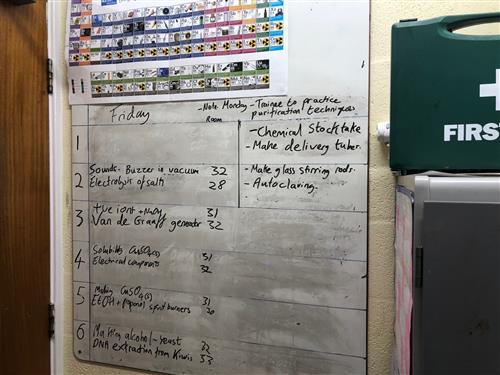 Friday
- Note Monday - Trainee to practice
purification techniques
Room
1
- Chemical Stocktake
- Make delivery tubes.
2
Sounds - Buzzer in vacuum 32
Electrolysis of salts 28
- Make glass stirring rods.
- Autoclaving.
3
+ve ions + NaOH 31
Van de Graaff generator 32
4
Solubility CuSO4(s) 31
Electrical components 32
5
Making CuSO4(s) 31
EtOH + propanol spirit burners
6
Making alcohol - yeast 32
DNA extraction from Kiwis 33
FIRS